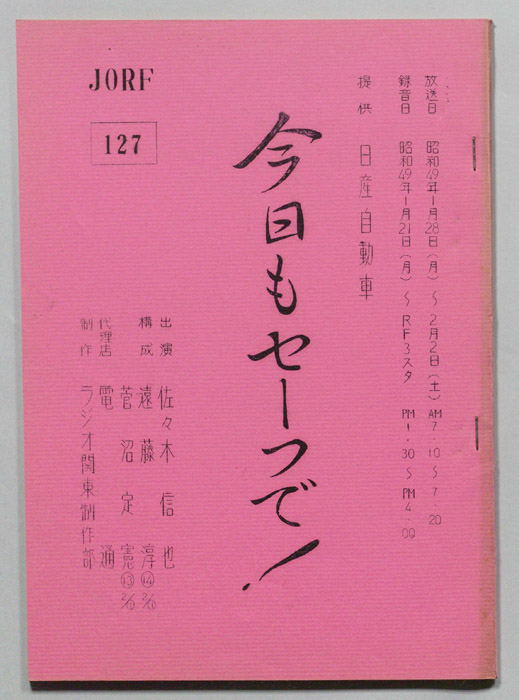 放送日 昭和49年1月28日(月)~2月2日(土) AM7.10~7.20
録音日 昭和49年1月21日(月)~RF3スタ PM1.30~PM4.00
提供 日産自動車
今日もセーフで!
JORF
127
出演 佐々木信也
構成 遠藤 淳⑭2/1
菅沼定憲⑬2/2
代理店 電通
制作 ラジオ関東制作部